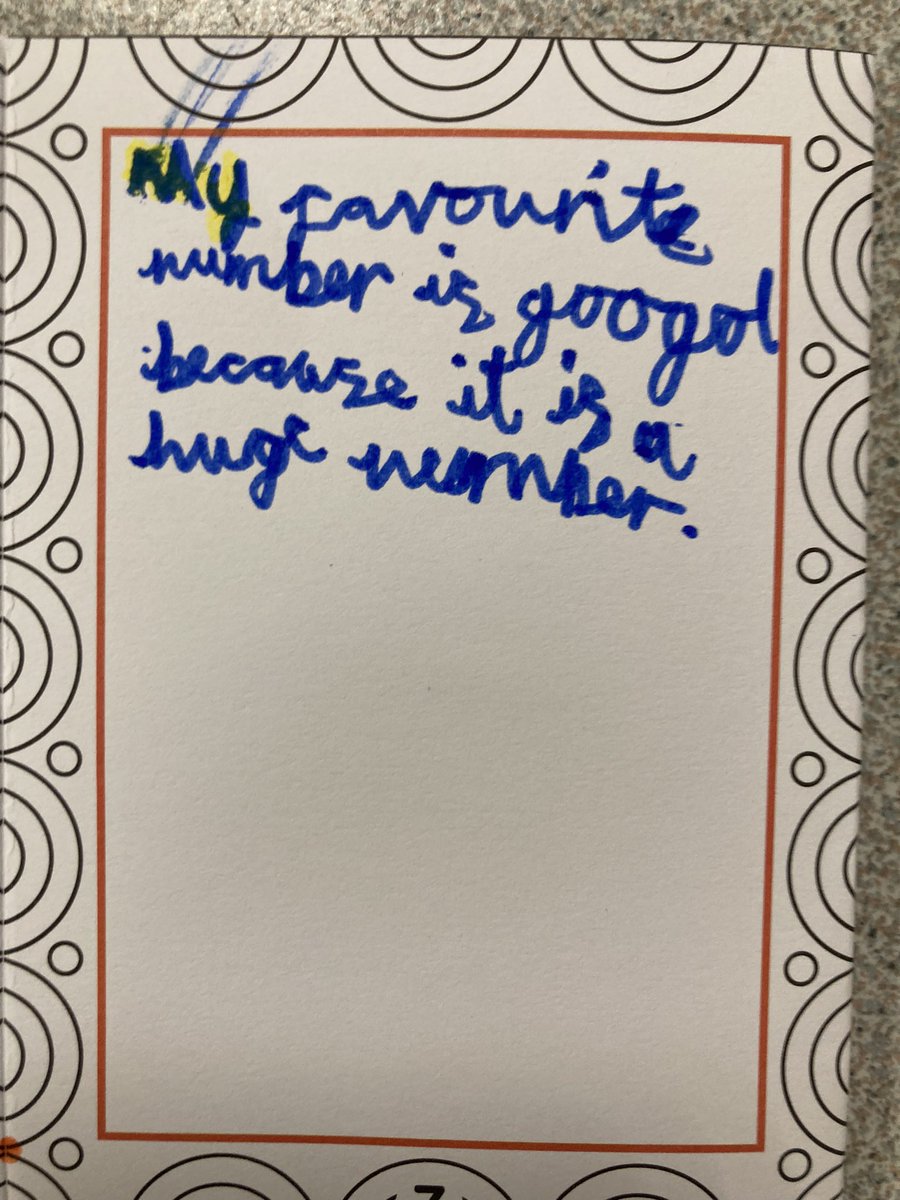 My favourite
number is googol
because it is a
huge number.
7